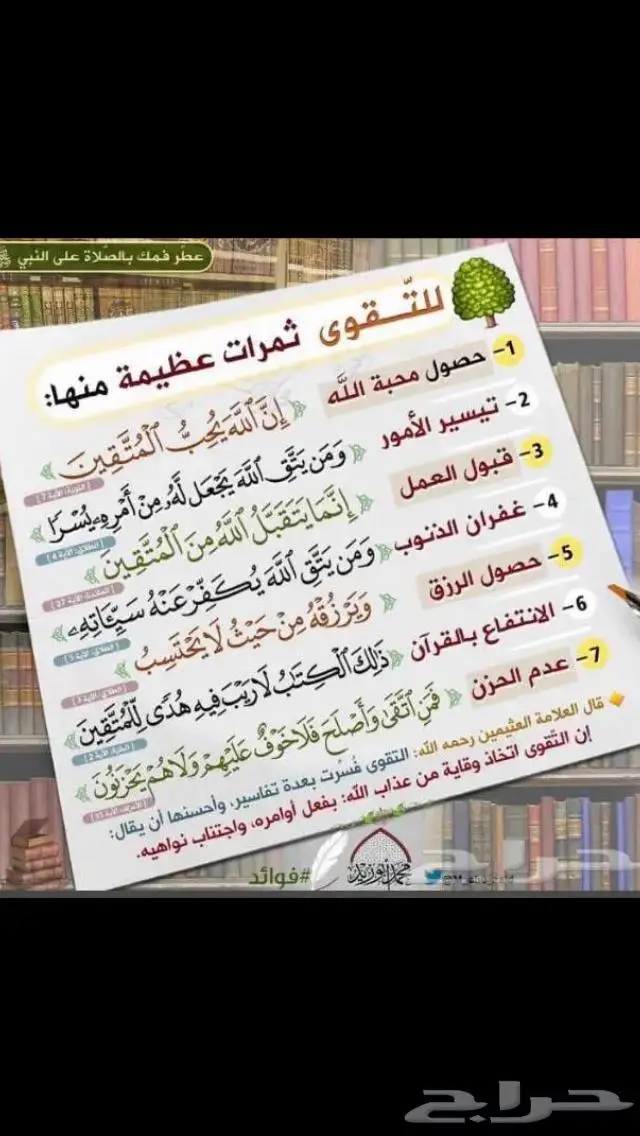 عطّر فمك بالصّلاة على النبي ﷺ
للتّـقوى ثمرات عظيمة منها:
1- حصول محبة الله
﴿إِنَّ ٱللَّهَ يُحِبُّ ٱلْمُتَّقِينَ﴾
[التوبة، الآية 7]
2- تيسير الأمور
﴿وَمَن يَتَّقِ ٱللَّهَ يَجْعَل لَّهُۥ مِنْ أَمْرِهِۦ يُسْرًا﴾
[الطلاق، الآية 4]
3- قبول العمل
﴿إِنَّمَا يَتَقَبَّلُ ٱللَّهُ مِنَ ٱلْمُتَّقِينَ﴾
[المائدة، الآية 27]
4- غفران الذنوب
﴿وَمَن يَتَّقِ ٱللَّهَ يُكَفِّرْ عَنْهُ سَيِّـَٔاتِهِۦ﴾
[الطلاق، الآية 5]
5- حصول الرزق
﴿وَيَرْزُقْهُ مِنْ حَيْثُ لَا يَحْتَسِبُ﴾
[الطلاق، الآية 3]
6- الانتفاع بالقرآن
﴿ذَٰلِكَ ٱلْكِتَٰبُ لَا رَيْبَ فِيهِ هُدًى لِّلْمُتَّقِينَ﴾
[البقرة، الآية 2]
7- عدم الحزن
﴿فَمَنِ ٱتَّقَىٰ وَأَصْلَحَ فَلَا خَوْفٌ عَلَيْهِمْ وَلَا هُمْ يَحْزَنُونَ﴾
[الأعراف، الآية 35]
قال العلامة العثيمين رحمه الله: التقوى فُسّرت بعدة تفاسير، وأحسنها أن يقال:
إن التّقوى اتخاذ وقاية من عذاب الله: بفعل أوامره، واجتناب نواهيه.
#فوائد
محمد أبو زيد
حراج
حراج